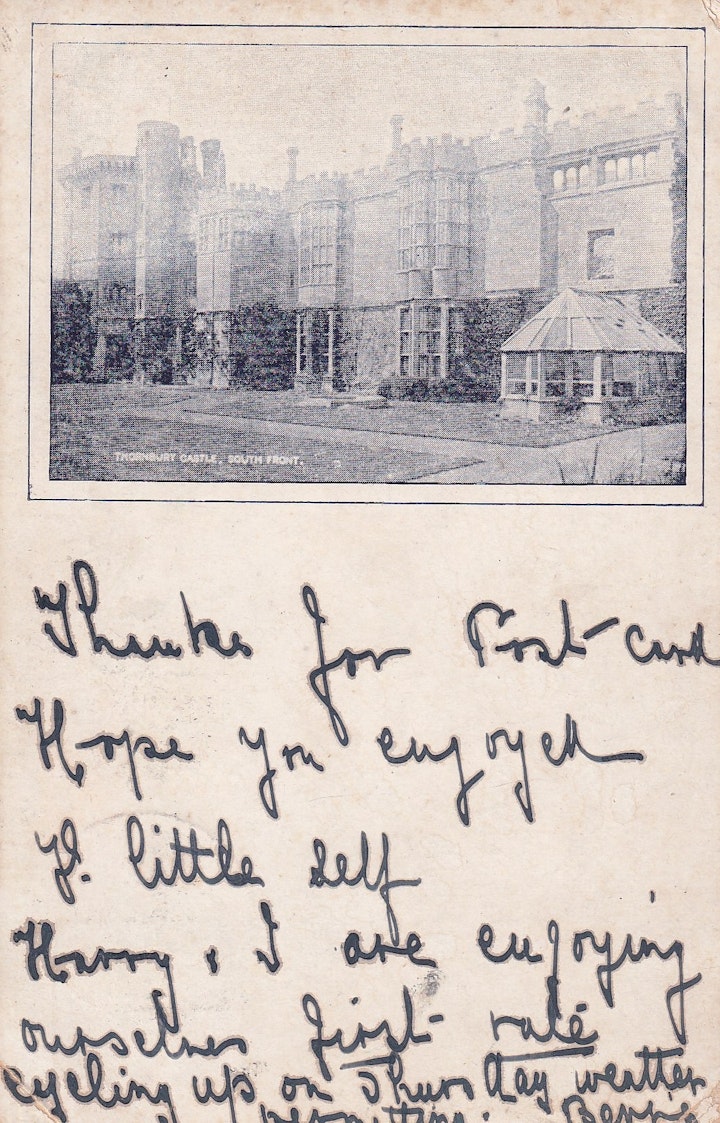 THORNBURY CASTLE, SOUTH FRONT.
Thanks for Post-card
Hope you enjoyed
Y. little self
Harry & I are enjoying
ourselves first-rate
cycling up on Thursday weather
permitting.